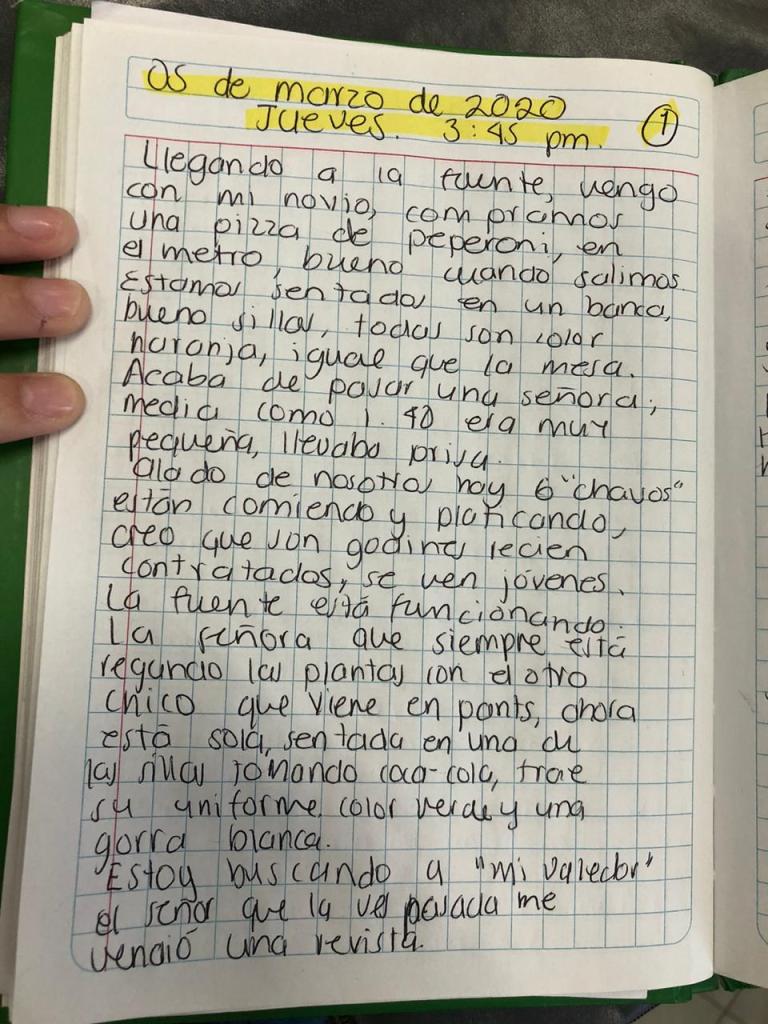 05 de marzo de 2020
Jueves. 3:45 pm. 1
Llegando a la fuente, vengo
con mi novio, compramos
una pizza de peperoni, en
el metro, bueno cuando salimos.
Estamos sentados en un banca,
bueno sillas, todas son color
naranja, igual que la mesa.
Acaba de pasar una señora,
media como 1.40 era muy
pequeña, llevaba prisa.
alado de nosotros hay 6 "chavos"
están comiendo y platicando,
creo que son godines recien
contratados, se ven jóvenes.
La fuente está funcionando.
La señora que siempre está
regando las plantas con el otro
chico que viene en pants, ahora
está sola, sentada en una de
las sillas tomando coca-cola, trae
su uniforme color verde y una
gorra blanca.
Estoy buscando a "mi valedor"
el señor que la vez pasada me
vendió una revista.